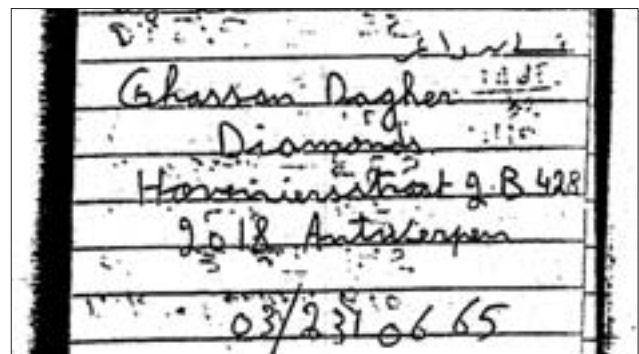 Ghassan Dagher
Diamonds
Hoveniersstraat 2 B 428
2018 Antwerpen
03/231 06 65